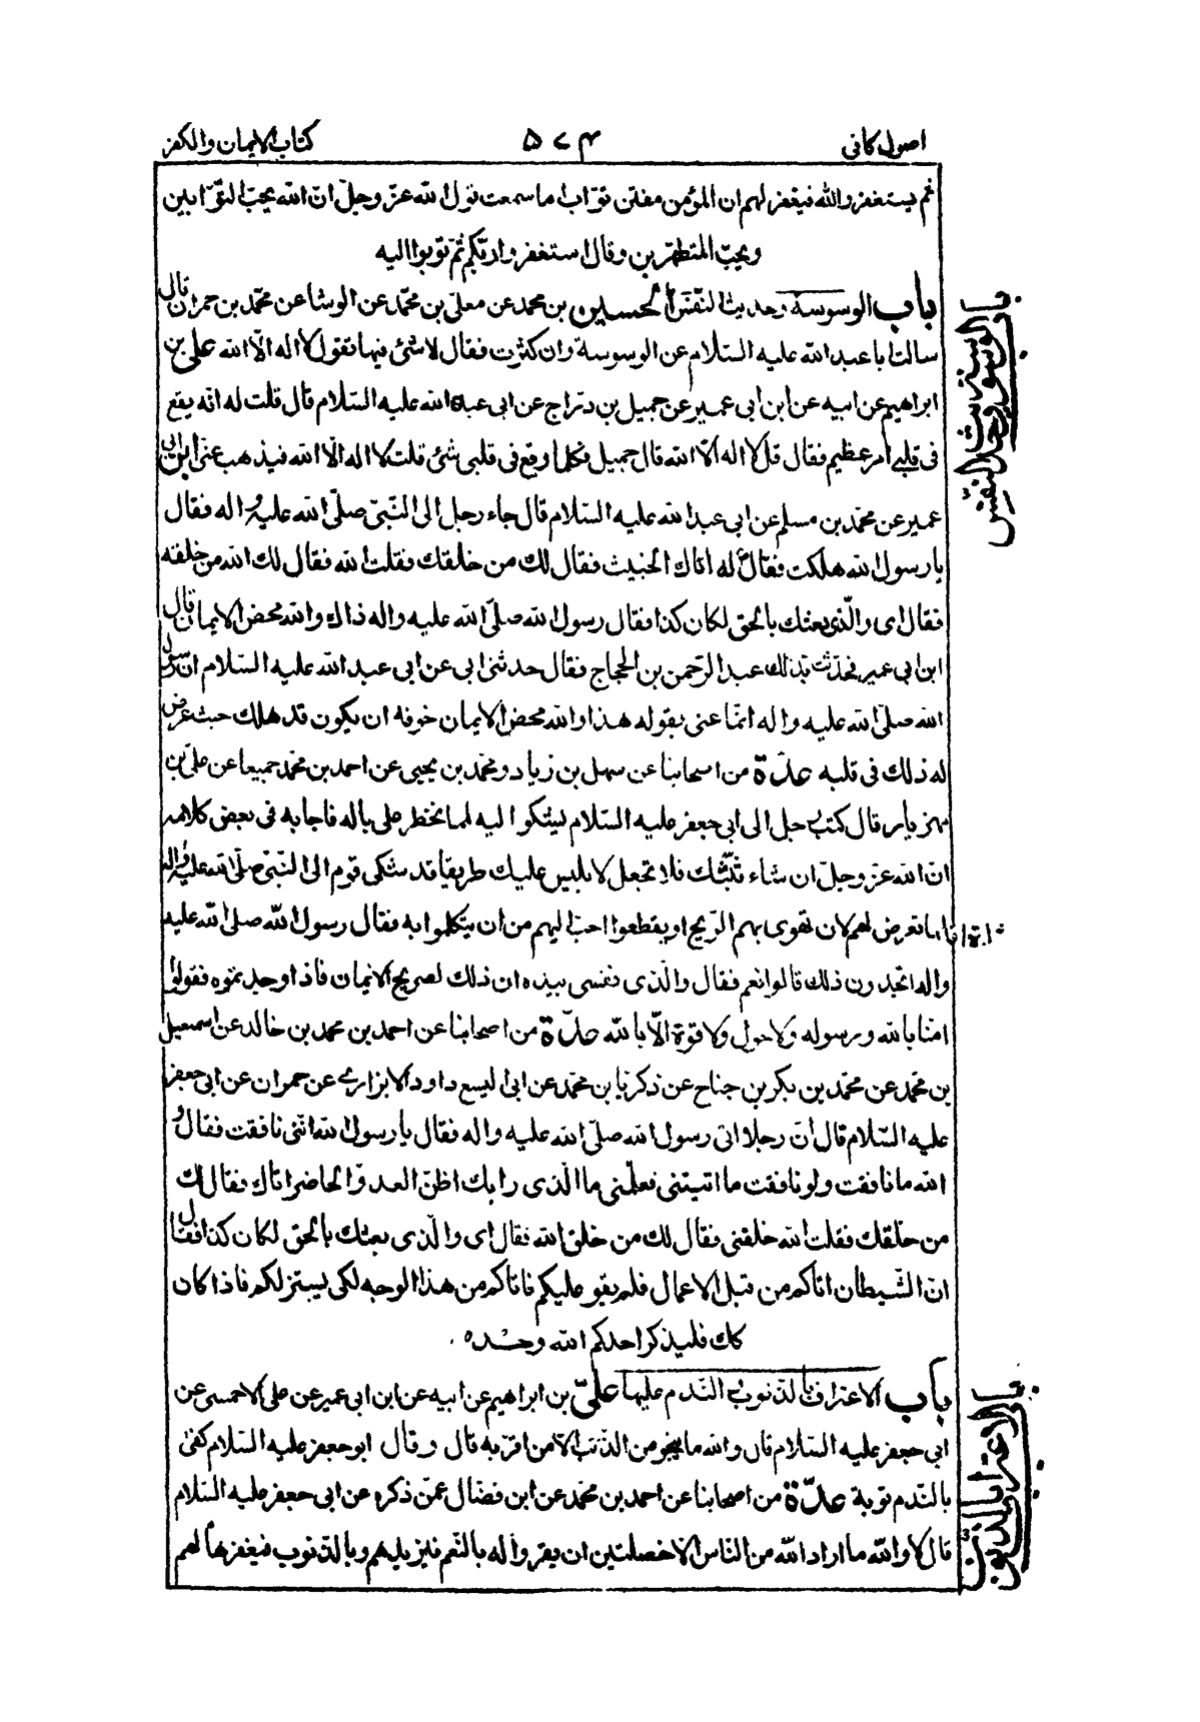 اصول كافى
۵۷۴
كتاب الايمان والكفر
ثم يستغفر والله فيغفر لهم ان المؤمن مفتن توّاب اما سمعت قول الله عزّ وجلّ انّ الله يحبّ التوّابين
ويحبّ المتطهّرين وقال استغفروا ربّكم ثمّ توبوا اليه
باب الوسوسة وحديث النّفس الحسين بن محمد عن معلّى بن محمّد عن الوشا عن محمّد بن حمران قال
سالت ابا عبد الله عليه السّلام عن الوسوسة وان كثرت فقال لا شئ فيها تقول لا اله الّا الله علي بن
ابراهيم عن ابيه عن ابن ابى عمير عن جميل بن درّاج عن ابى عبد الله عليه السّلام قال قلت له انّه يقع
فى قلبي امر عظيم فقال قل لا اله الّا الله قال جميل فكلما وقع فى قلبى شئ قلت لا اله الّا الله فيذهب عنى ابن ابى
عمير عن محمّد بن مسلم عن ابى عبد الله عليه السّلام قال جاء رجل الى النّبىّ صلّى الله عليه واله فقال
يا رسول الله هلكت فقال له اتاك الخبيث فقال لك من خلقك فقلت الله فقال لك الله من خلقه
فقال اى والّذى بعثك بالحق لكان كذا فقال رسول الله صلّى الله عليه واله ذاك والله محض الايمان قال
ابن ابى عمير فحدّثت بذلك عبد الرّحمن بن الحجاج فقال حدثنى ابى عن ابى عبد الله عليه السّلام ان رسول
الله صلّى الله عليه واله انّما عنى بقوله هذا والله محض الايمان خوفه ان يكون قد هلك حيث عرض
له ذلك فى قلبه عدّة من اصحابنا عن سهل بن زياد ومحمّد بن يحيى عن احمد بن محمّد جميعا عن علىّ بن
مهزيار قال كتب رجل الى ابى جعفر عليه السّلام يشكوا اليه لمما يخطر على باله فاجابه فى بعض كلامه
انّ الله عزّ وجلّ ان شاء ثبّتك فلا تجعل لابليس عليك طريقا قد شكى قوم الى النّبىّ صلّى الله عليه واله
لمما تعرض لهم لان تهوى بهم الرّيح او يقطعوا احبّ اليهم من ان يتكلموا به فقال رسول الله صلى الله عليه
واله اتجدون ذلك قالوا نعم فقال والّذى نفسى بيده ان ذلك لصريح الايمان فاذا وجدتموه فقولوا
امنّا بالله ورسوله ولا حول ولا قوة الّا بالله عدّة من اصحابنا عن احمد بن محمد بن خالد عن اسمعيل
بن محمّد عن محمّد بن بكر بن جناح عن زكريا بن محمّد عن ابى اليسع داود الابزارى عن حمران عن ابى جعفر
عليه السّلام قال انّ رجلا اتى رسول الله صلّى الله عليه واله فقال يا رسول الله انّنى نافقت فقال و
الله ما نافقت ولو نافقت ما اتيتنى فعلّمنى ما الّذى رابك اظنّ العدوّ الحاضر اتاك فقال لك
من خلقك فقلت الله خلقنى فقال لك من خلق الله فقال اى والّذى بعثك بالحق لكان كذا فقال
انّ الشّيطان اتاكم من قبل الاعمال فلم يقو عليكم فاتاكم من هذا الوجه لكى يستزلكم فاذا كان
كك فليذكر احدكم الله وحده
باب الاعتراف بالذنوب والنّدم عليها علىّ بن ابراهيم عن ابيه عن ابن ابى عمير عن على الاحمسى عن
ابى جعفر عليه السّلام قال والله ما ينجو من الذّنب الّا من اقرّ به قال وقال ابو جعفر عليه السّلام كفى
بالنّدم توبة عدّة من اصحابنا عن احمد بن محمّد عن ابن فضّال عمّن ذكره عن ابى جعفر عليه السّلام
قال لا والله ما اراد الله من النّاس الا خصلتين ان يقروا له بالنّعم فيزيدهم وبالذنوب فيغفرها لهم
باب الوسوسة وحديث النفس
باب الاعتراف بالذنوب